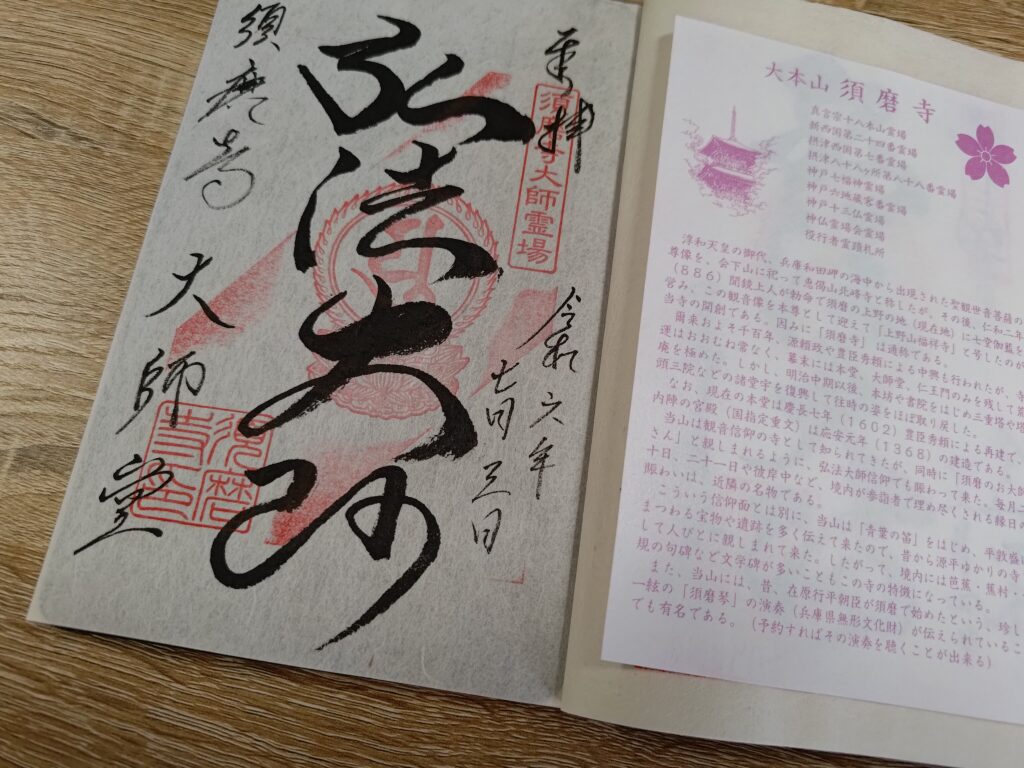 奉拝
須磨寺大師霊場
令和六年
七月三日
弘法大師
須磨寺
大師堂
大本山 須磨寺
真言宗十八本山霊場
新西国第二十四番霊場
摂津西国第七番霊場
摂津八十八ヶ所第八十八番霊場
神戸七福神霊場
神戸六地蔵客番霊場
神戸十三仏霊場
神仏霊場会霊場
役行者霊蹟札所
淳和天皇の御代、兵庫和田岬の海中から出現された聖観世音菩薩の
尊像を、会下山に祀って恵偈山北峰寺と称したが、その後、仁和二年
(886)聞鏡上人が勅命で須磨の上野の地(現在地)に七堂伽藍を
営み、この観音像を本尊として迎えて「上野山福祥寺」と号したのが
当寺の開創である。因みに「須磨寺」は通称である。
爾来およそ千百年、源頼政や豊臣秀頼による中興も行われたが、寺
運はおおむね常なく、幕末には本堂、大師堂、仁王門のみを残して荒
廃を極めた。しかし、明治中期以後、本坊や書院をはじめ三重塔や塔
頭三院などの諸堂宇を復興して往時の姿をほぼ取り戻した。
なお、現在の本堂は慶長七年(1602)豊臣秀頼による再建で、
内陣の宮殿(国指定重文)は応安元年(1368)の建造である。
当山は観音信仰の寺として知られてきたが、同時に「須磨のお大師
さん」と親しまれるように、弘法大師信仰でも賑わって来た。毎月二
十日、二十一日や彼岸中など、境内が参詣者で埋め尽くされる縁日の
賑わいは、近隣の名物である。
こういう信仰面とは別に、当山は「青葉の笛」をはじめ、平敦盛に
まつわる宝物や遺跡を多く伝えて来たので、昔から源平ゆかりの寺
して人びとに親しまれて来た。したがって、境内には芭蕉・蕪村・
規の句碑など文学碑が多いこともこの寺の特徴になっている。
また、当山には、昔、在原行平朝臣が須磨で始めたという、珍し
一絃の「須磨琴」の演奏(兵庫県無形文化財)が伝えられているこ
でも有名である。(予約すればその演奏を聴くことが出来る)